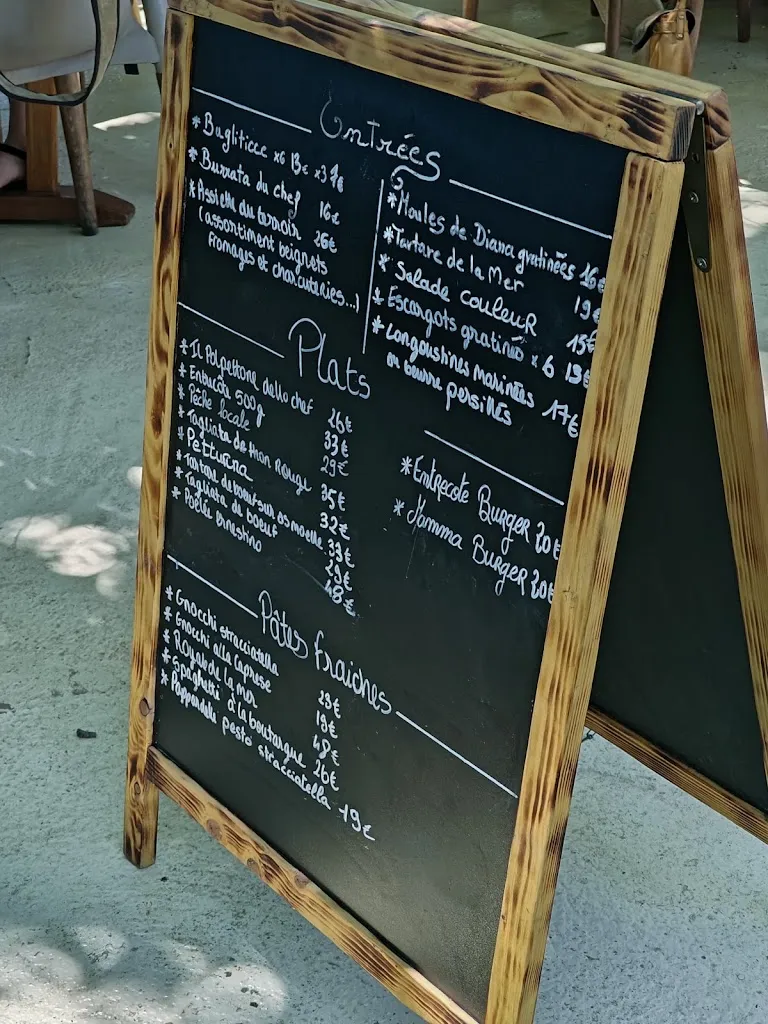 Entrées
* Bugliticce x6 13€ x3 7€
* Burrata du chef 16€
* Assiette du terroir 26€
(assortiment beignets
fromages et charcuteries...)
* Moules de Diana gratinées 16€
* Tartare de la Mer 19€
* Salade couleur 15€
* Escargots gratinés x6 13€
* Langoustines marinées 17€
en beurre persillés
Plats
* Il Polpettone dello chef 26€
* Entrecôte 500g 33€
* Pêche locale 29€
* Tagliata de thon rouge 35€
* Petturina 32€
* Tartare de boeuf sur os moelle 33€
* Tagliata de boeuf 29€
* Poêlée ernestino 48€
* Entrecote Burger 20€
* Mamma Burger 20€
Pâtes fraiches
* Gnocchi stracciatella 23€
* Gnocchi alla caprese 19€
* Royale de la mer 48€
* Spaghetti à la boutargue 26€
* Pappardelle pesto stracciatella 19€